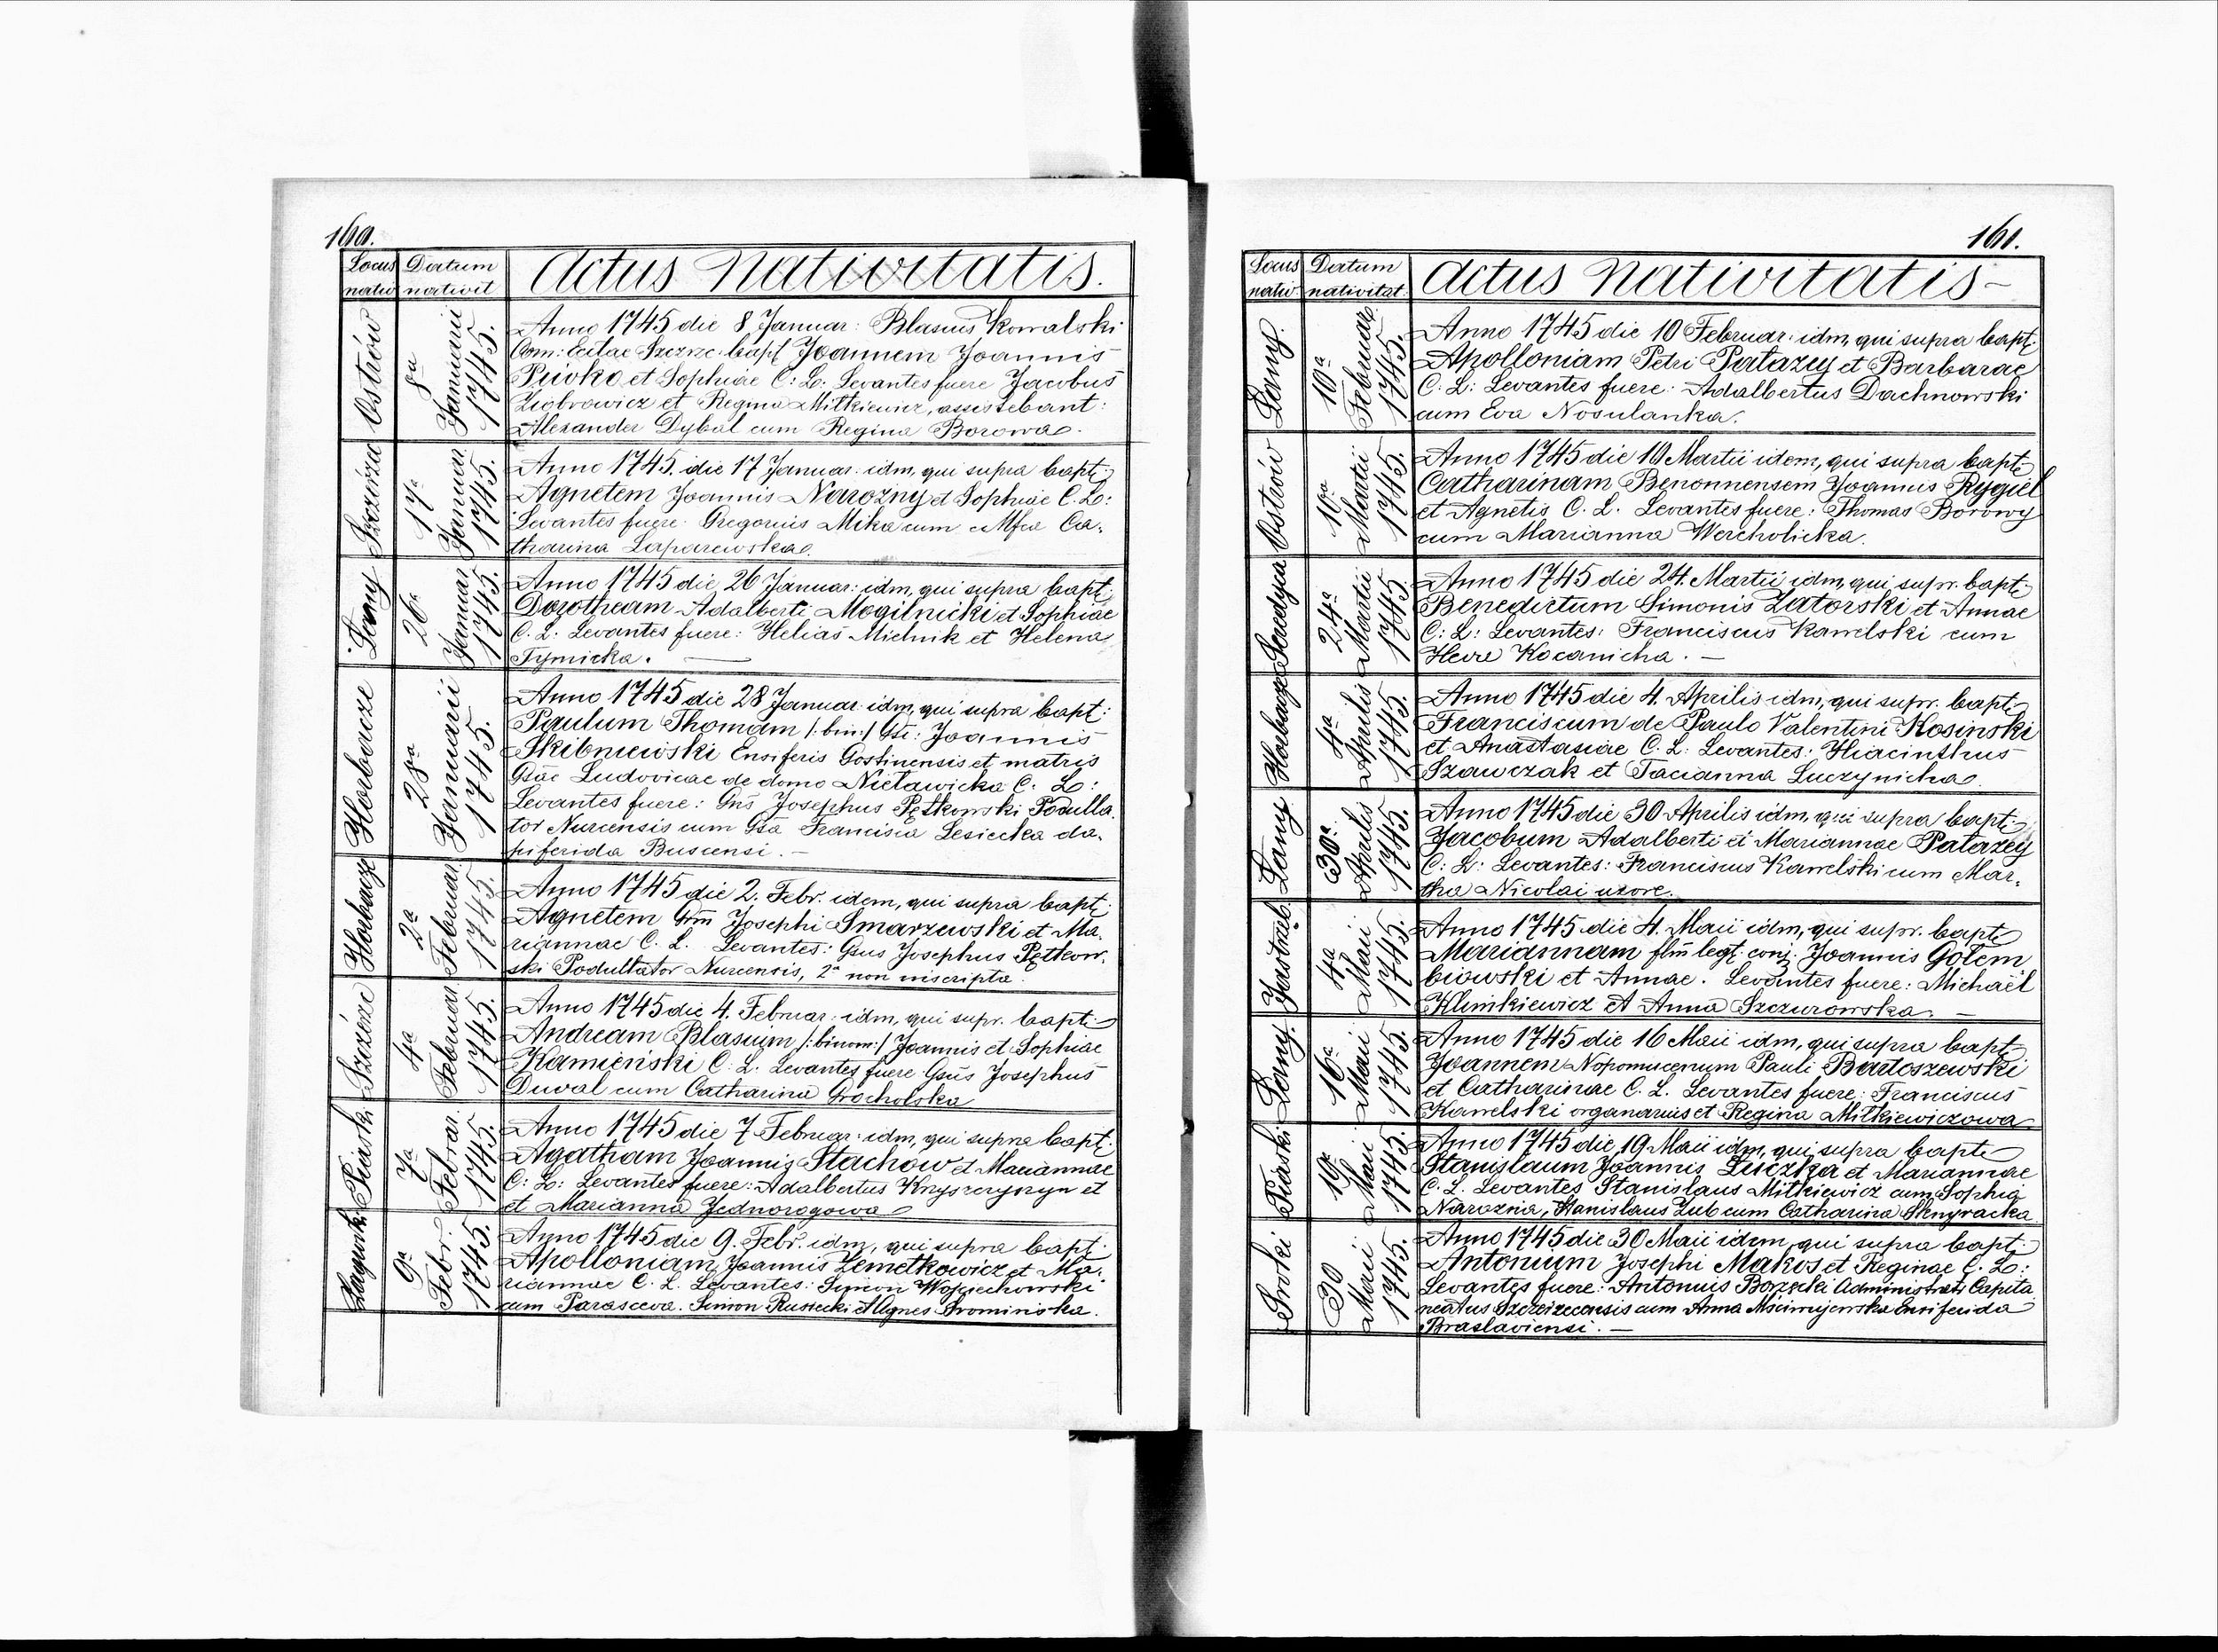 160.
Locus nativ
Datum nativit
Actus Nativitatis.
Ostrów
8a Januarii 1745.
Anno 1745 die 8 Januar: Blasius Kowalski
Com: Ecclae Szczrzc: bapt Joannem Joannis
Piivko et Sophiae C: L: Levantes fuere Jacobus
Ziobrowicz et Regina Mitkiewicz, assistebant:
Alexander Dybal cum Regina Borowa.
Szczérza
17a Januar 1745.
Anno 1745. die 17 Januar: idm, qui supra bapt:
Agnetem Joannis Narozny et Sophiae C. L:
Levantes fuere: Gregorius Mika cum Mfca Ca-
tharina Laparewska.
Łany
26a Januar 1745.
Anno 1745 die 26 Januar: idm, qui supra bapt:
Dorotheam Adalberti Mogilnicki et Sophiae
C. L: Levantes fuere: Helias Mielnik et Helena
Tymicka.
Horbacze
28a Januarii 1745.
Anno 1745 die 28 Januar: idm, qui supra bapt:
Paulum Thomam /:bin:/ Gsi: Joannis
Skibniewski Ensiferis Gostinensis et matris
Gsae Ludovicae de domo Nietawicka C. L:
Levantes fuere: Gns Josephus Pętkowski Podulla
tor Nurcensis cum Gsa Francisca Lesiecka da-
piferida Buscensi.
Horbacze
2a Februar 1745.
Anno 1745 die 2. Febr. idem, qui supra bapt:
Agnetem Grm Josephi Smarzewski et Ma-
riannae C. L. Levantes: Gsus Josephus Pętkow-
ski Podultator Nurcensis, 2a non inscripta.
Szczérzc
4a Februar 1745.
Anno 1745 die 4. Februar: idm, qui supr. bapt:
Andream Blasium /:binom:/ Joannis et Sophiae
Kamieński C. L. Levantes fuere Gsus Josephus
Duval cum Catharina Grocholska
Piaski
7a Februar. 1745.
Anno 1745 die 7 Februar: idm, qui supra bapt:
Agatham Joannis Stachow et Mariannae
C: L: Levantes fuere: Adalbertus Knyszczyszyn et
et Marianna Jednorogowa
9a Febr. 1745.
Anno 1745 die 9. Febr. idm, qui supra bapt:
Apolloniam Joannis Zemetkowicz et Ma-
riannae C. L. Levantes: Simon Woyciechowski
cum Parasceva. Simon Russecki et Agnes Srominska.
161.
Locus nativ
Datum nativitat.
Actus Nativitatis
Łany.
10a Februar. 1745.
Anno 1745 die 10 Februar: idm, qui supra bapt:
Apolloniam Petri Patazey et Barbarae
C. L: Levantes fuere: Adalbertus Dachnowski
cum Eva Nosulanka.
Ostrów
10a Martii 1745.
Anno 1745 die 10 Martii idem, qui supra bapt:
Catharinam Benonnensem Joannis Rygiel
et Agnetis C. L. Levantes fuere: Thomas Borowy
cum Marianna Wercholicka.
Seredyca
24a Martii 1745
Anno 1745 die 24. Martii idm, qui supr. bapt:
Benedictum Simonis Zatorski et Annae
C: L: Levantes: Franciscus Kawelski cum
Heva Kocanicha.
Horbacze
4a Aprilis 1745.
Anno 1745 die 4. Aprilis idm, qui supr. bapt:
Franciscum de Paulo Valentini Kosinski
et Anastasiae C. L: Levantes: Hiacinthus
Szawczak et Tacianna Luczynicha.
Łany
30a Aprilis 1745.
Anno 1745 die 30 Aprilis idm, qui supra bapt:
Jacobum Adalberti et Mariannae Patazey
C: L: Levantes: Franciscus Kawelski cum Mar-
tha Nicolai uxore.
Jastrzęb.
4a Maii 1745.
Anno 1745 die 4. Maii idm, qui supr. bapt:
Mariannam flm legt. conj. Joannis Gołem
biowski et Annae. Levantes fuere: Michaël
Klimkiewicz et Anna Szczurowska.
Łany.
16a Maii 1745.
Anno 1745 die 16 Maii idm, qui supra bapt:
Joannem Nopomucenum Pauli Bartoszewski
et Catharinae C. L. Levantes fuere: Franciscus
Kawelski organarius et Regina Mitkiewiczowa
Piaski
19a Maii 1745.
Anno 1745 die 19 Maii idm, qui supra bapt:
Stanislaum Joannis Luczka et Mariannae
C. L. Levantes Stanislaus Mitkiewicz cum Sophia
Narozna, Stanislaus Zub cum Catharina Sknyracka
Sroki
30 Maii 1745.
Anno 1745 die 30 Maii idem, qui supra bapt:
Antonium Josephi Makos et Reginae C. L:
Levantes fuere: Antonius Borzęcki Administrati Capita
neatus Szczeizecensis cum Anna Ensiferida
Braslaviensi.